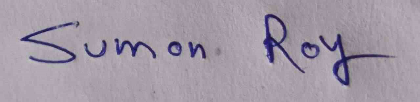 Sumon Roy